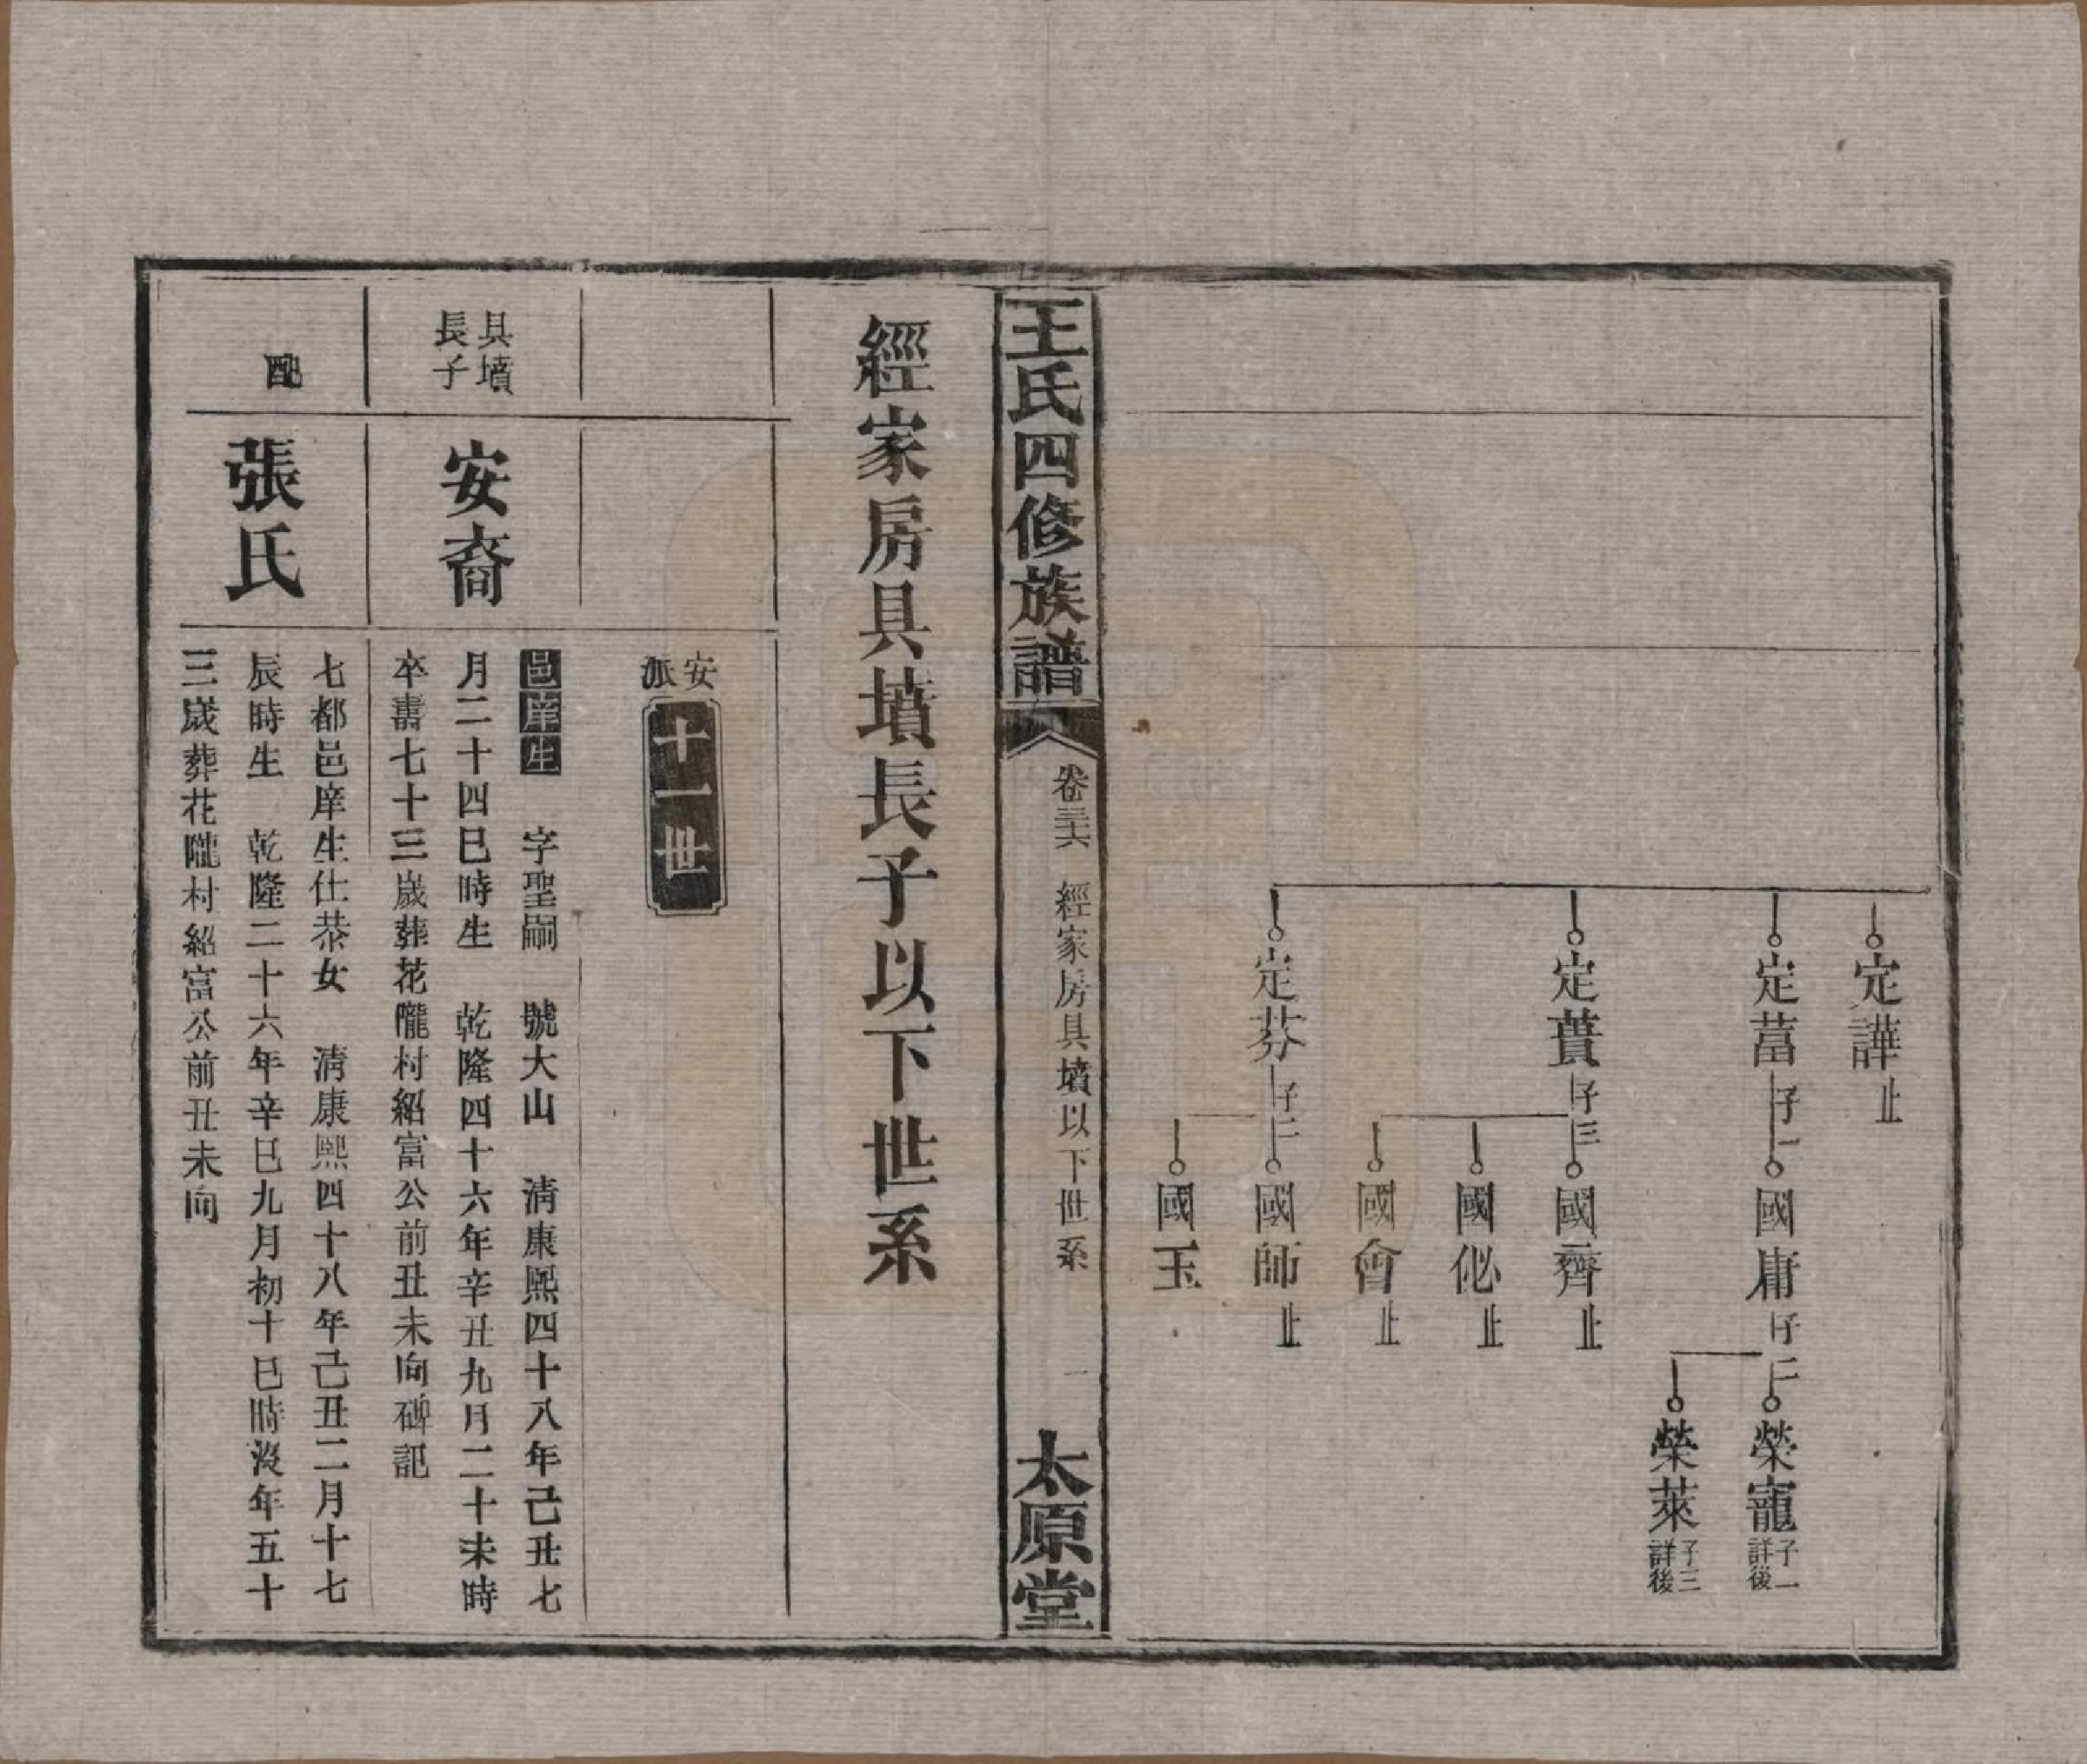 定譁止
定菖仔一
國庸仔二
榮寵子一詳後
榮萊子三詳後
定蕡仔三
國齊止
國佖止
國會止
定芬仔二
國師止
國玉
王氏四修族譜
卷三十六 經家房具墳以下世系 一
太原堂
經家房具墳長子以下世系
安派
十一世
具墳長子
安裔
邑庠生 字聖嗣 號大山 清康熙四十八年己丑七
月二十四巳時生 乾隆四十六年辛丑九月二十未時
卒壽七十三歲葬花隴村紹富公前丑未向碑記
配
張氏
七都邑庠生仕恭女 清康熙四十八年己丑二月十七
辰時生 乾隆二十六年辛巳九月初十巳時沒年五十
三歲葬花隴村紹富公前丑未向